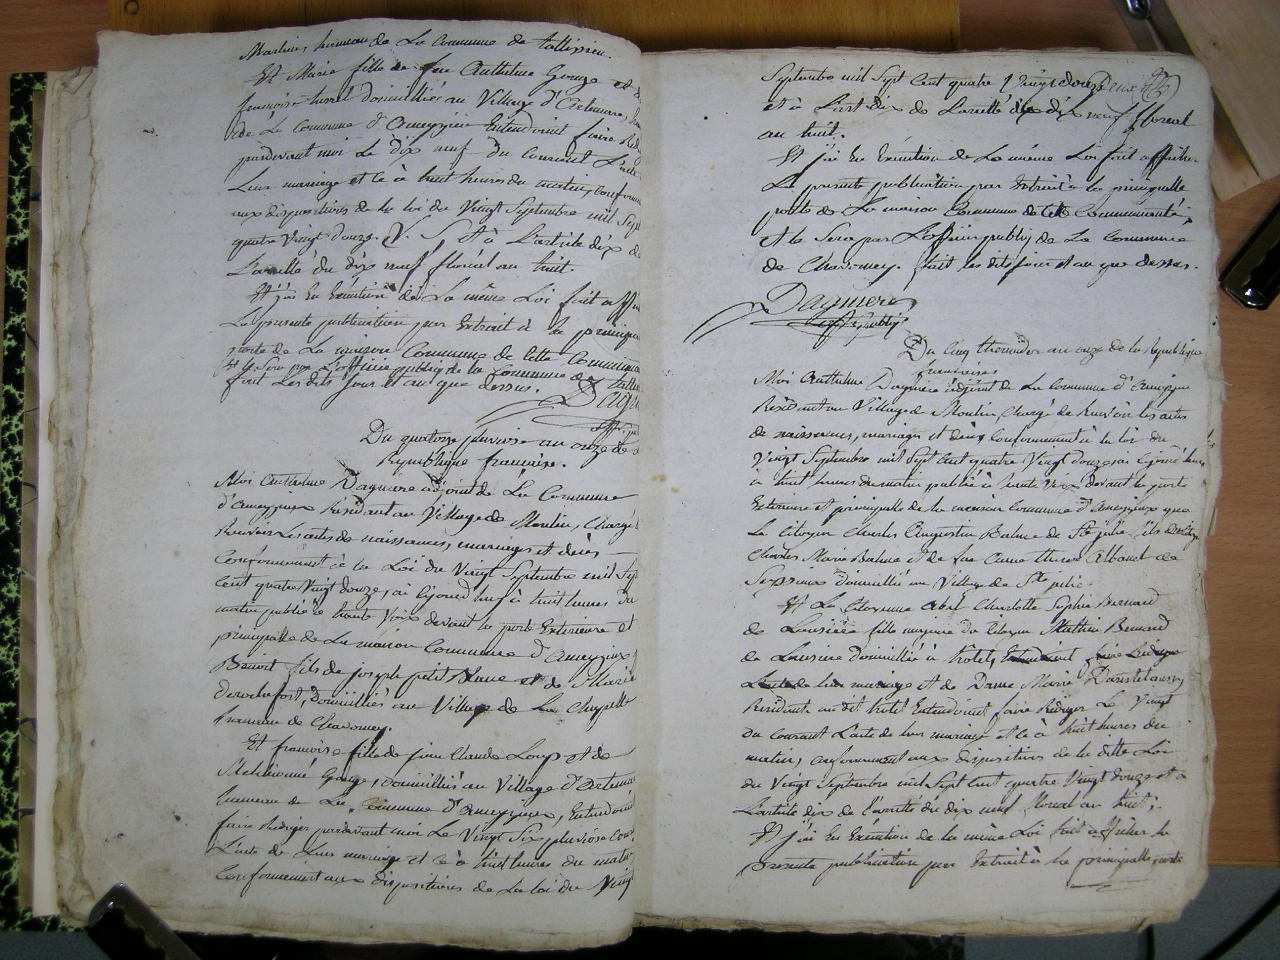 hameau de La Commune de tallissieu.
Et Marie fille de feu Anthelme Gouge et de
françoise domiciliés au Village d'
de La Commune d'Ameyzieu Entendoint faire
pardevant moi Le dix neuf du Courant L'acte
Leur mariage et Ce à huit heures du matin, conform
aux dispositions de la loi du Vingt Septembre mil Sep
quatre Vingt douze. Et à L'article dix de
L'arrêté du dix neuf floréal an huit.
Et j'ai En Exécution de La même Loi fait aff
La presente publication par Extrait à la princip
porte de La maison Commune de Cette Commun
Et Sera par L'officier public de La Commune de
fait Les dits jour et an que dessus.
Du quatorze pluviose an onze de
Republique française.
Moi Anthelme Dagnere adjoint de La Commune
d'Ameyzieu Résidant au Village de Moulin, Chargé
Recevoir Les actes de naissances, mariages et décès
Conformement à la Loi du Vingt Septembre mil Sep
Cent quatre Vingt douze, ai Cejourd'huy à huit heures du
matin publié à haute Voix devant la porte Exterieure et
principalle de La maison Commune d'Ameyzieux
Benoit fils de joseph petit et de Marie
derochefort, domiciliés au Village de La Chapelle
hameau de Chavorney.
Et francoise fille de jean Claude Loup et de
Gouge, domiciliés au Village d'
hameau de La Commune d'Ameyzieu, Entendoint
faire Rediger pardevant moi Le Vingt Six pluviose Cour
L'acte de Leur mariage et Ce à huit heures du matin
Conformement aux dispositions de La loi du Vingt
Septembre mil Sept Cent quatre Vingt douze
et à L'article dix de L'arrêté du dix neuf floreal
an huit.
Et j'ai En Exécution de La même Loi fait afficher
La presente publication par Extrait à la principalle
porte de La maison Commune de Cette Communauté,
et le Sera par L'officier public de La Commune
de Chavorney. fait les dits jour et an que dessus.
Dagnere
off. public
Du Cinq thermidor an onze de la Republique
francaise
Moi Anthelme Dagnere adjoint de La Commune d'Ameyzieu
Résidant au Village de Moulin, Chargé de Recevoir les actes
de naissances, mariages et décès Conformement à la loi du
Vingt Septembre mil Sept Cent quatre Vingt douze ai Cejourd'huy
à huit heures du matin publié à haute Voix devant la porte
Exterieure et principalle de la maison Commune d'Ameyzieux que
Le Citoyen Charles Augustin Balme de Ste julie, fils de
Charles Marie Balme et de feu Anne
domicilié au Village de Ste julie.
Et La Citoyenne Charlotte Sophie Bernard
de fille majeure du Citoyen Mathieu Bernard
de domiciliée à
L'acte de leur mariage et de Dame Marie
Résidante au dit Entendoint faire Rediger Le Vingt
du Courant L'acte de leur mariage et Ce à huit heures du
matin, conformement aux dispositions de la ditte Loi
du Vingt Septembre mil Sept Cent quatre Vingt douze et à
L'article dix de l'arrêté du dix neuf floreal an huit;
Et j'ai En Exécution de la même Loi fait afficher la
presente publication par Extrait à la principalle porte